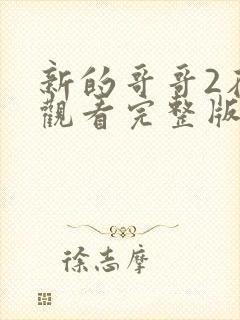 新的哥哥2在
觀看完整版
徐志摩